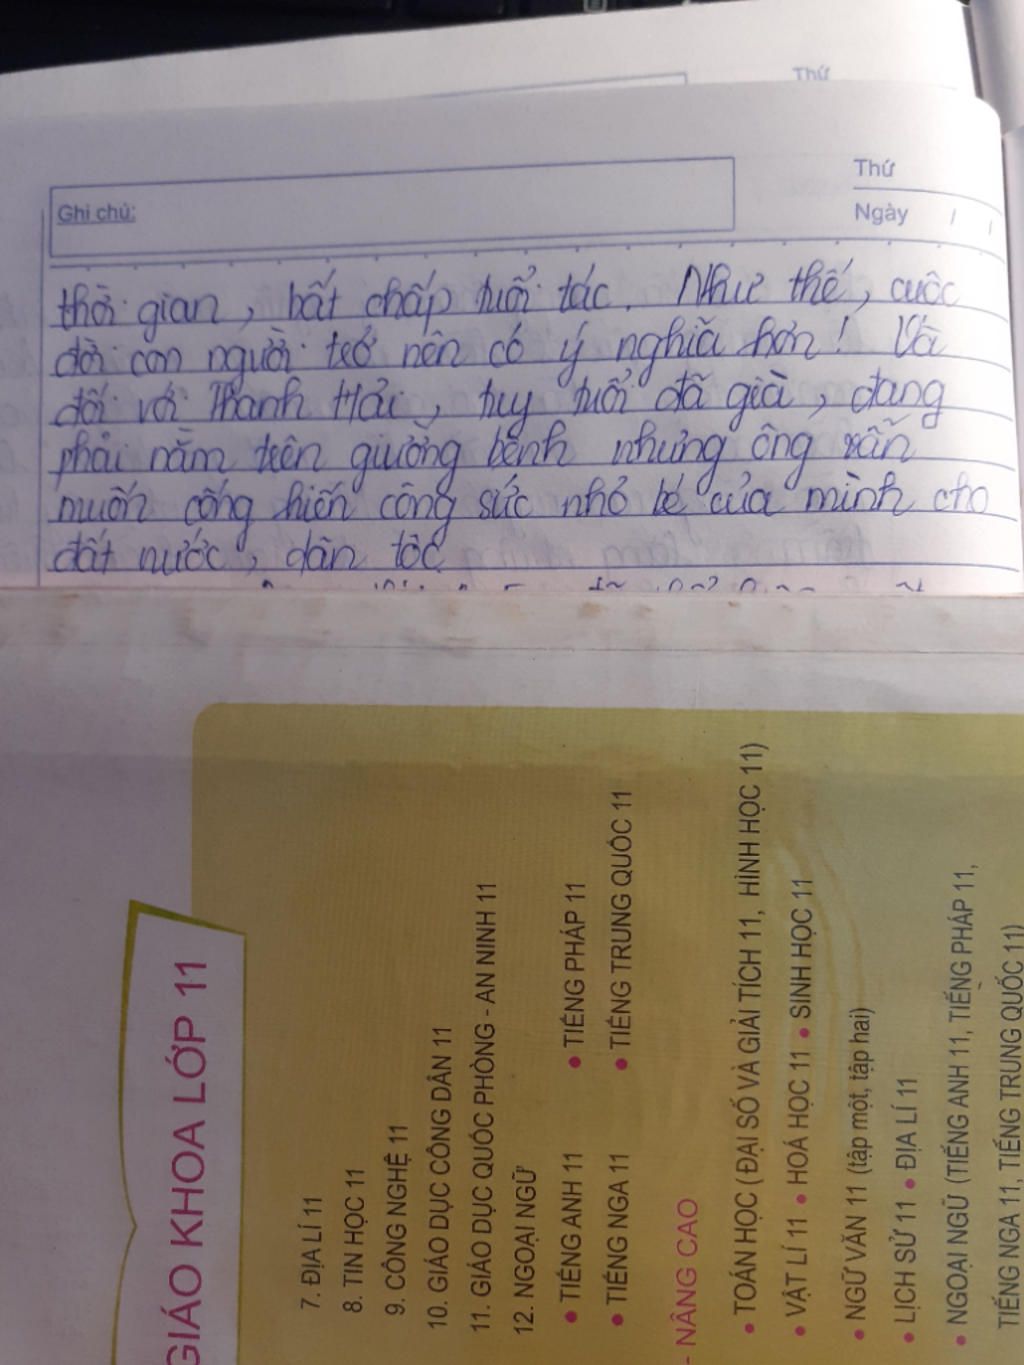 Thứ
Thứ
Ghi chú:
Ngày / /
thời gian, bất chấp tuổi tác. Như thế, cuộc
đời con người trở nên có ý nghĩa hơn! Và
đối với Thanh Hải, tuy tuổi đã già, đang
phải nằm trên giường bệnh nhưng ông vẫn
muốn cống hiến công sức nhỏ bé của mình cho
đất nước, dân tộc
GIÁO KHOA LỚP 11
7. ĐỊA LÍ 11
8. TIN HỌC 11
9. CÔNG NGHỆ 11
10. GIÁO DỤC CÔNG DÂN 11
11. GIÁO DỤC QUỐC PHÒNG - AN NINH 11
12. NGOẠI NGỮ
• TIẾNG ANH 11 • TIẾNG PHÁP 11
• TIẾNG NGA 11 • TIẾNG TRUNG QUỐC 11
- NÂNG CAO
• TOÁN HỌC (ĐẠI SỐ VÀ GIẢI TÍCH 11, HÌNH HỌC 11)
• VẬT LÍ 11 • HOÁ HỌC 11 • SINH HỌC 11
• NGỮ VĂN 11 (tập một, tập hai)
• LỊCH SỬ 11 • ĐỊA LÍ 11
• NGOẠI NGỮ (TIẾNG ANH 11, TIẾNG PHÁP 11,
TIẾNG NGA 11, TIẾNG TRUNG QUỐC 11)